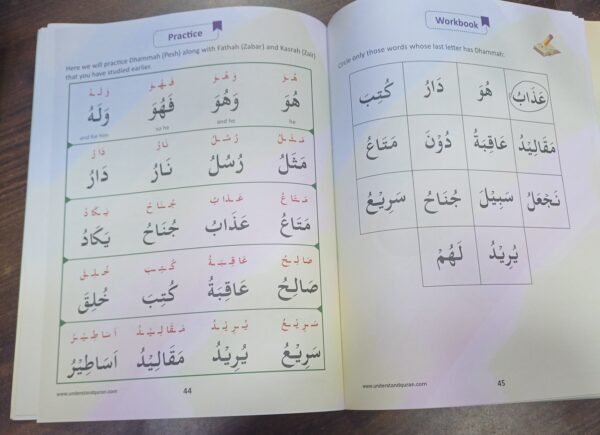 Practice
Here we will practice Dhammah (Pesh) along with Fathah (Zabar) and Kasrah (Zair)
that you have studied earlier.
هُـوَ وَ هُـوَ فَـهُـوَ وَ لَـهُ
هُوَ وَهُوَ فَهُوَ وَلَهُ
he and he so he and for him
مَـثَـلُ رُ سُـلُ نَا رُ دَا رُ
مَثَلُ رُسُلُ نَارُ دَارُ
مَـتَـا عُ عَـذَا بُ جُـنَـا حُ يَـكَـا دُ
مَتَاعُ عَذَابُ جُنَاحُ يَكَادُ
صَا لِـحُ عَا قِـبَـةُ كُـتِـبَ خُـلِـقَ
صَالِحُ عَاقِبَةُ كُتِبَ خُلِقَ
سَـرِ يْـعُ يُـرِ يْـدُ مَـقَـا لِـيْـدُ اَ سَـا طِـيْـرُ
سَرِيْعُ يُرِيْدُ مَقَالِيْدُ اَسَاطِيْرُ
www.understandquran.com 44
Workbook
Circle only those words whose last letter has Dhammah:
عَذَابُ هُوَ دَارُ كُتِبَ
مَقَالِيْدُ عَاقِبَةُ دُوْنَ مَتَاعُ
نَجْعَلُ سَبِيْلَ جُنَاحُ سَرِيْعُ
يُرِيْدُ لَهُمْ
www.understandquran.com 45